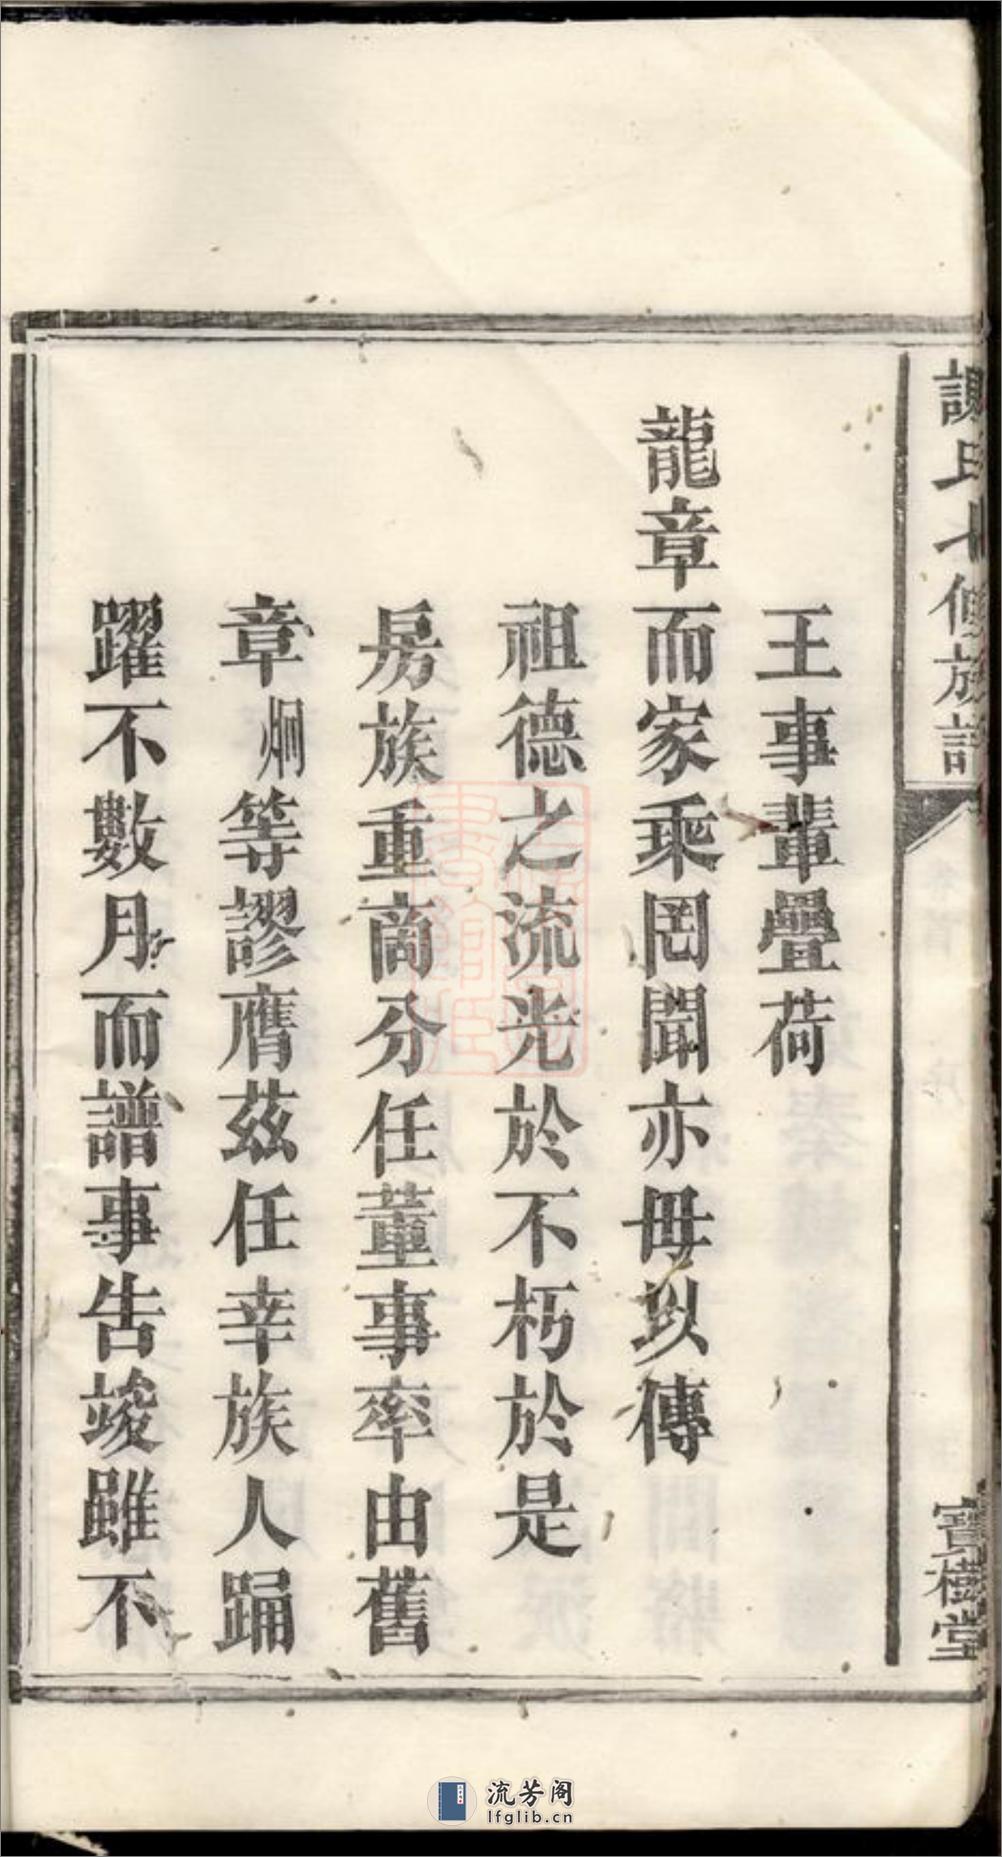 謝氏七修族譜
寶樹堂
王事輩疊荷
龍章而家乘罔聞亦毋以傳
祖德之流光於不朽於是
房族重商分任董事率由舊
章炯等謬膺茲任幸族人踊
躍不數月而譜事告竣雖不
流芳阁
lfglib.cn